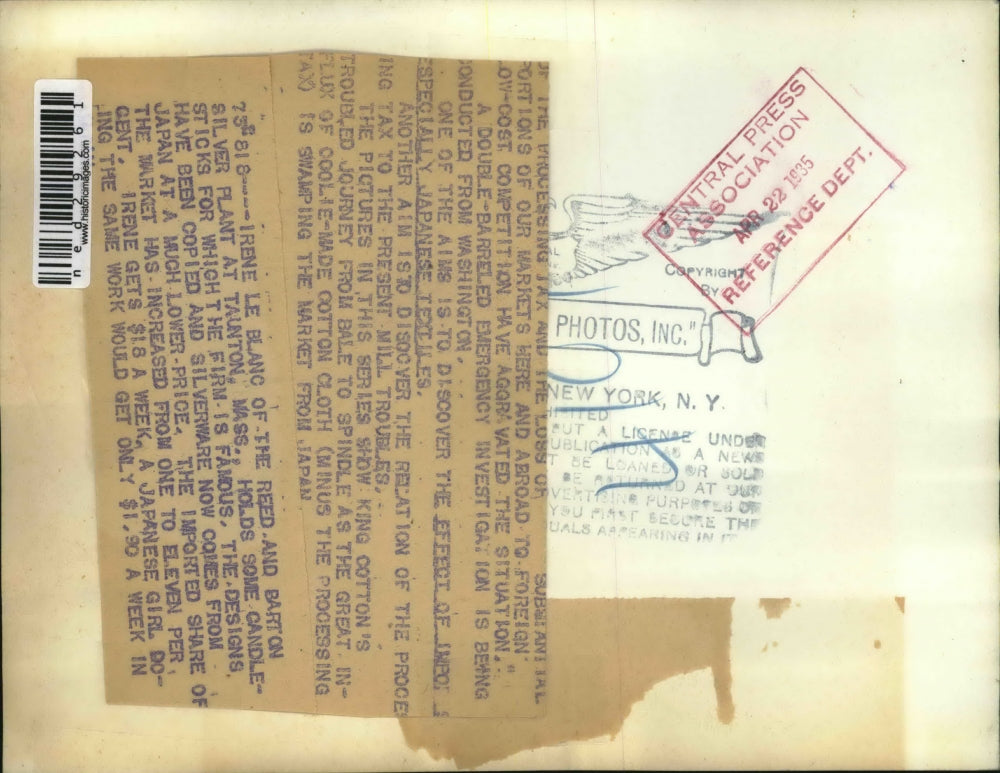 OF THE PROCESSING TAX AND THE LOSS OF SUBSTANTIAL
PORTIONS OF OUR MARKETS HERE AND ABROAD TO FOREIGN
LOW-COST COMPETITION HAVE AGGRAVATED THE SITUATION."
A DOUBLE-BARRELED EMERGENCY INVESTIGATION IS BEING
CONDUCTED FROM WASHINGTON.
ONE OF THE AIMS IS TO DISCOVER THE EFFECT OF
ESPECIALLY JAPANESE TEXLILES.
ANOTHER AIM IS TO DISOCVER THE RELATION OF THE PROCES
ING TAX TO THE PRESENT MILL TROUBLES.
THE PICTURES IN THIS SERIES SHOW KING COTTON'S
TROUBLED JOURNEY FROM BALE TO SPINDLE AS THE GREAT IN-
FLUX OF COOLIE-MADE COTTON CLOTH (MINUS THE PROCESSING
TAX) IS SWAMPING THE MARKET FROM JAPAN.
23818----IRENE LE BLANC OF THE REED AND BARTON
SILVER PLANT AT TAUNTON, MASS., HOLDS SOME CANDLE-
STICKS FOR WHICH THE FIRM IS FAMOUS. THE DESIGNS
HAVE BEEN COPIED AND SILVERWARE NOW COMES FROM
JAPAN AT A MUCH LOWER PRICE. THE IMPORTED SHARE OF
THE MARKET HAS INCREASED FROM ONE TO ELEVEN PER
CENT. IRENE GETS $18 A WEEK, A JAPANESE GIRL DO-
ING THE SAME WORK WOULD GET ONLY $1.90 A WEEK IN
CENTRAL PRESS
ASSOCIATION
APR 22 1935
REFERENCE DEPT.
COPYRIGHT
BY
PHOTOS, INC."
NEW YORK, N. Y.
BUT A LICENSE UNDER
PUBLICATION AS A NEWS
T BE LOANED OR SOLD
BE RETURNED AT OUR
VERTISING PURPOSES OR
YOU FIRST SECURE THE
UALS APPEARING IN IT
www.historicimages.com
ned29261